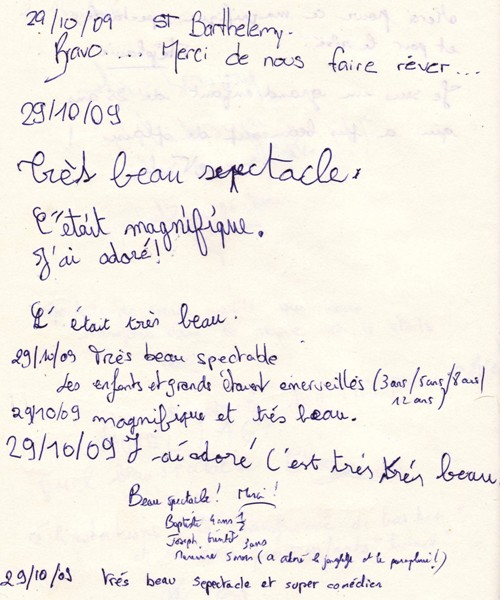 29/10/09 ST Barthelemy.
Bravo..... Merci de nous faire rêver...
29/10/09
Très beau sepctacle.
C'était magnifique.
J'ai adoré!
C' était très beau.
29/10/09 Très beau spectable
Les enfants et grands étaient émerveillés (3 ans/5 ans/8 ans/
12 ans)
29/10/09 magnifique et trés beau.
29/10/09 J -ai adoré C'est trés trés beau
Beau spectacle! Merci!
Baptiste 4 ans 1/2
Joseph bientôt 3 ans
Maman (a adoré le jonglage et le parapluie!)
29/10/09 trés beau sepectacle et super comédien